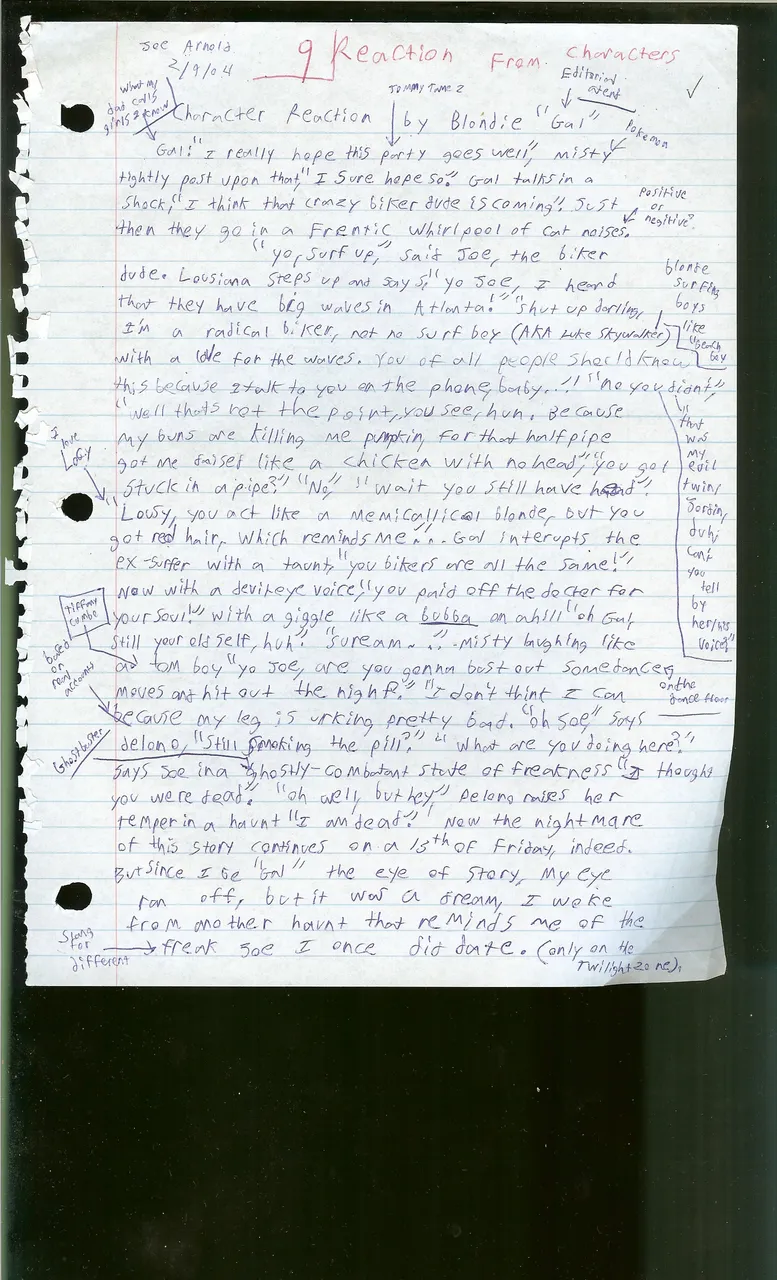 Joe Arnold
2/9/04
9 Reaction From Characters
what my
dad calls
girls I know
Tommy Tanez
Editorial
atent
✓
Character Reaction by Blondie "Gal"
Pokemon
Gal: "I really hope this party goes well," Misty
tightly post upon that, "I sure hope so". Gal talks in a
shock, "I think that crazy biker dude is coming". Just
positive
or
negitive?
then they go in a Frentic Whirlpool of cat noises.
"yo, surf up," said Joe, the biker
dude. Lousiana steps up and says, "yo Joe, I heard
that they have big waves in Atlanta!" "shut up darling,
blonde
surfing
boys
like
beach
boy
I'm a radical biker, not no surf boy (AKA Luke Skywalker)
with a love for the waves. You of all people should know
this because I talk to you on the phone, baby..!" "no you didnt",
"Well thats not the point, you see, hun. Because
that
was
my
evil
twin,
Jordin,
duh,
can't
you
tell
by
her/his
voice?"
my buns are killing me pumpkin, for that halfpipe
I
love
Lousy
got me daised like a chicken with no head," "you got
stuck in a pipe?" "No," "wait you still have head".
"Lousy, you act like a memicallical blonde, but you
got red hair, which reminds me"... Gal interupts the
ex-surfer with a taunt, "you bikers are all the same!",
Now with a devileye voice, "you paid off the docter for
tiffany
combo
your soul!" with a giggle like a bubba on a hill "oh Gal,
still your old self, huh?" "scream..." -misty laughing like
a tom boy "yo Joe, are you gonna bust out some dances
on the
dance floor
based
on
real
accounts
moves and hit out the night?" "I don't think I can
because my leg is urking pretty bad. "oh Joe," says
delono, "Still smoking the pill?" "What are you doing here?"
Ghostbuster
says Joe in a Ghostly-combatant state of freakness "I thought
you were dead". "oh well, but hey," Delono raises her
temper in a haunt "I am dead!" Now the nightmare
of this story continues on a 13th of Friday, indeed.
But since I be "Gal" the eye of story, My eye
ran off, but it was a dream, I woke
from another haunt that reminds me of the
Slang
for
different
freak Joe I once did date. (only on the
Twilight zone).